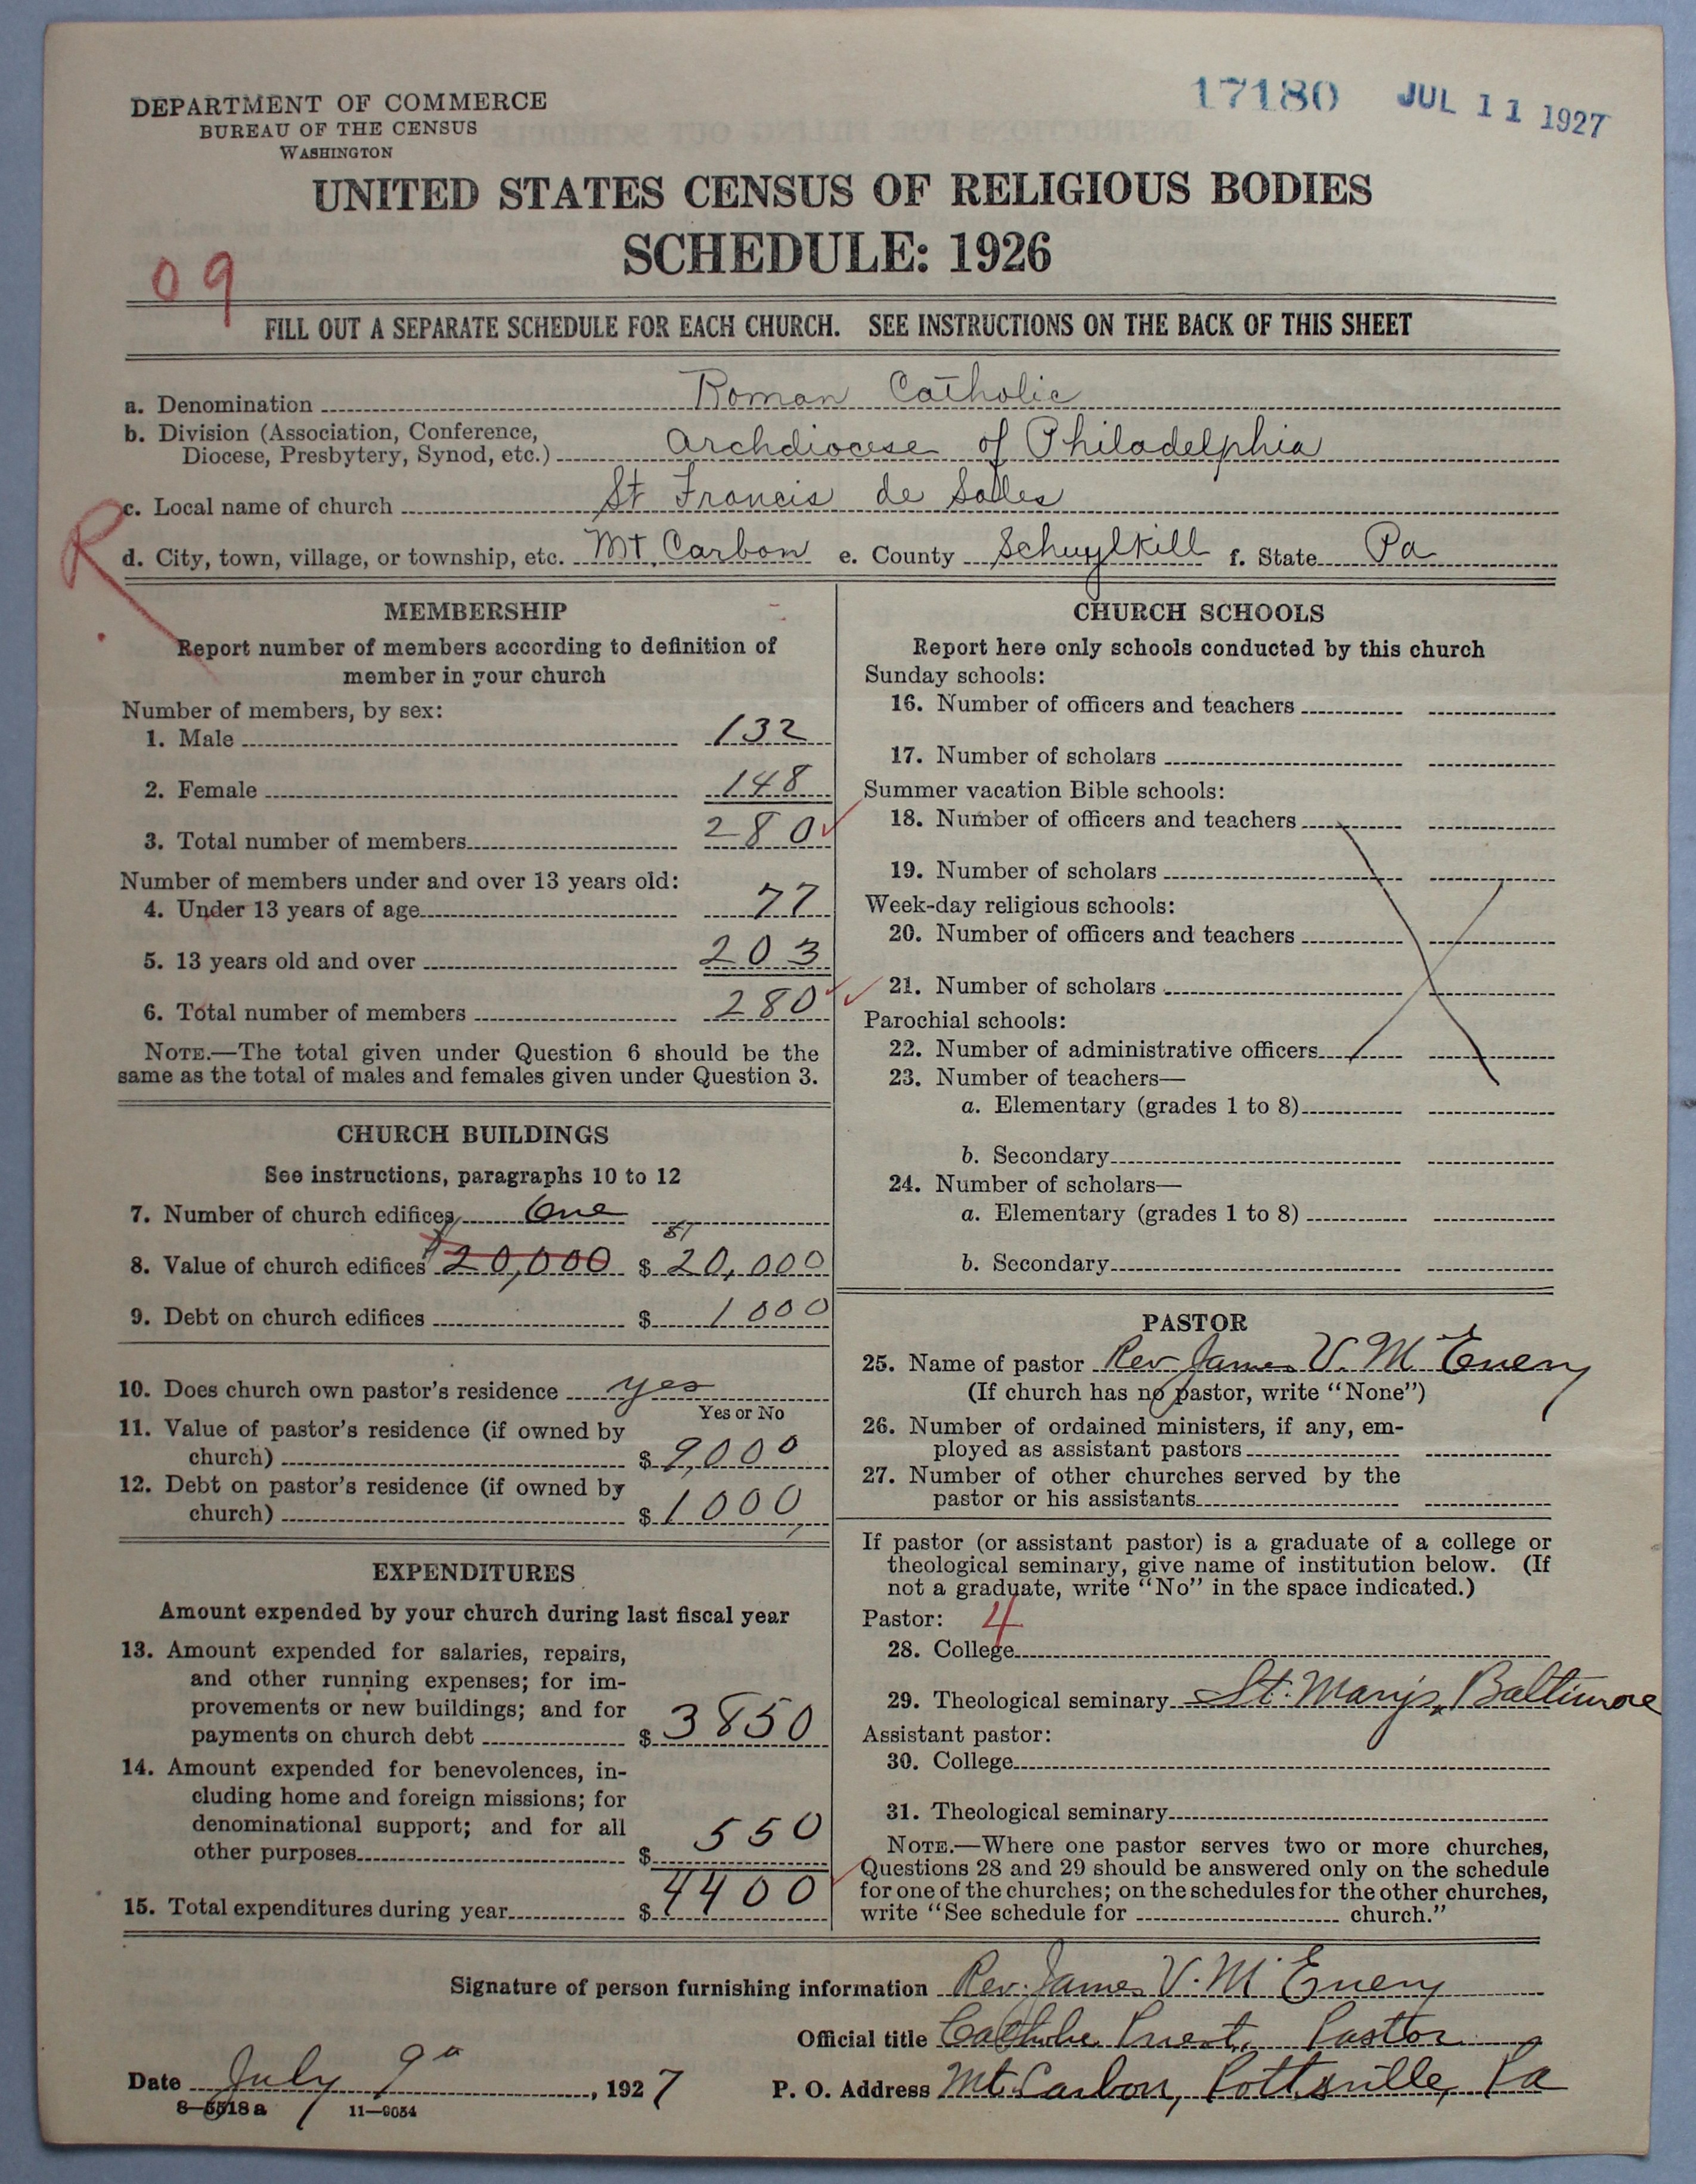 17180 JUL 11 1927
DEPARTMENT OF COMMERCE
BUREAU OF THE CENSUS
WASHINGTON
UNITED STATES CENSUS OF RELIGIOUS BODIES
SCHEDULE: 1926
09
FILL OUT A SEPARATE SCHEDULE FOR EACH CHURCH. SEE INSTRUCTIONS ON THE BACK OF THIS SHEET
a. Denomination Roman Catholic
b. Division (Association, Conference,
Diocese, Presbytery, Synod, etc.) Archdiocese of Philadelphia
c. Local name of church St Francis de Salles
R
d. City, town, village, or township, etc. Mt. Carbon e. County Schuylkill f. State Pa
MEMBERSHIP
Report number of members according to definition of
member in your church
Number of members, by sex:
1. Male 132
2. Female 148
3. Total number of members 280
Number of members under and over 13 years old:
4. Under 13 years of age 77
5. 13 years old and over 203
6. Total number of members 280
NOTE.—The total given under Question 6 should be the
same as the total of males and females given under Question 3.
CHURCH BUILDINGS
See instructions, paragraphs 10 to 12
7. Number of church edifices One
8. Value of church edifices $20,000 $ 20,000
9. Debt on church edifices $ 1000
10. Does church own pastor's residence yes
Yes or No
11. Value of pastor's residence (if owned by
church) $ 9,000
12. Debt on pastor's residence (if owned by
church) $ 1000
EXPENDITURES
Amount expended by your church during last fiscal year
13. Amount expended for salaries, repairs,
and other running expenses; for im-
provements or new buildings; and for
payments on church debt $ 3850
14. Amount expended for benevolences, in-
cluding home and foreign missions; for
denominational support; and for all
other purposes $ 550
15. Total expenditures during year $ 4400
CHURCH SCHOOLS
Report here only schools conducted by this church
Sunday schools:
16. Number of officers and teachers
17. Number of scholars
Summer vacation Bible schools:
18. Number of officers and teachers
19. Number of scholars
Week-day religious schools:
20. Number of officers and teachers
21. Number of scholars
Parochial schools:
22. Number of administrative officers
23. Number of teachers—
a. Elementary (grades 1 to 8)
b. Secondary
24. Number of scholars—
a. Elementary (grades 1 to 8)
b. Secondary
PASTOR
25. Name of pastor Rev. James V. McEnery
(If church has no pastor, write "None")
26. Number of ordained ministers, if any, em-
ployed as assistant pastors
27. Number of other churches served by the
pastor or his assistants
If pastor (or assistant pastor) is a graduate of a college or
theological seminary, give name of institution below. (If
not a graduate, write "No" in the space indicated.)
Pastor: 4
28. College
29. Theological seminary St. Mary's, Baltimore
Assistant pastor:
30. College
31. Theological seminary
NOTE.—Where one pastor serves two or more churches,
Questions 28 and 29 should be answered only on the schedule
for one of the churches; on the schedules for the other churches,
write "See schedule for church."
Signature of person furnishing information Rev. James V. McEnery
Official title Catholic Priest, Pastor
Date July 9, 1927 P. O. Address Mt. Carbon, Pottsville, Pa
8-5518a 11-9054